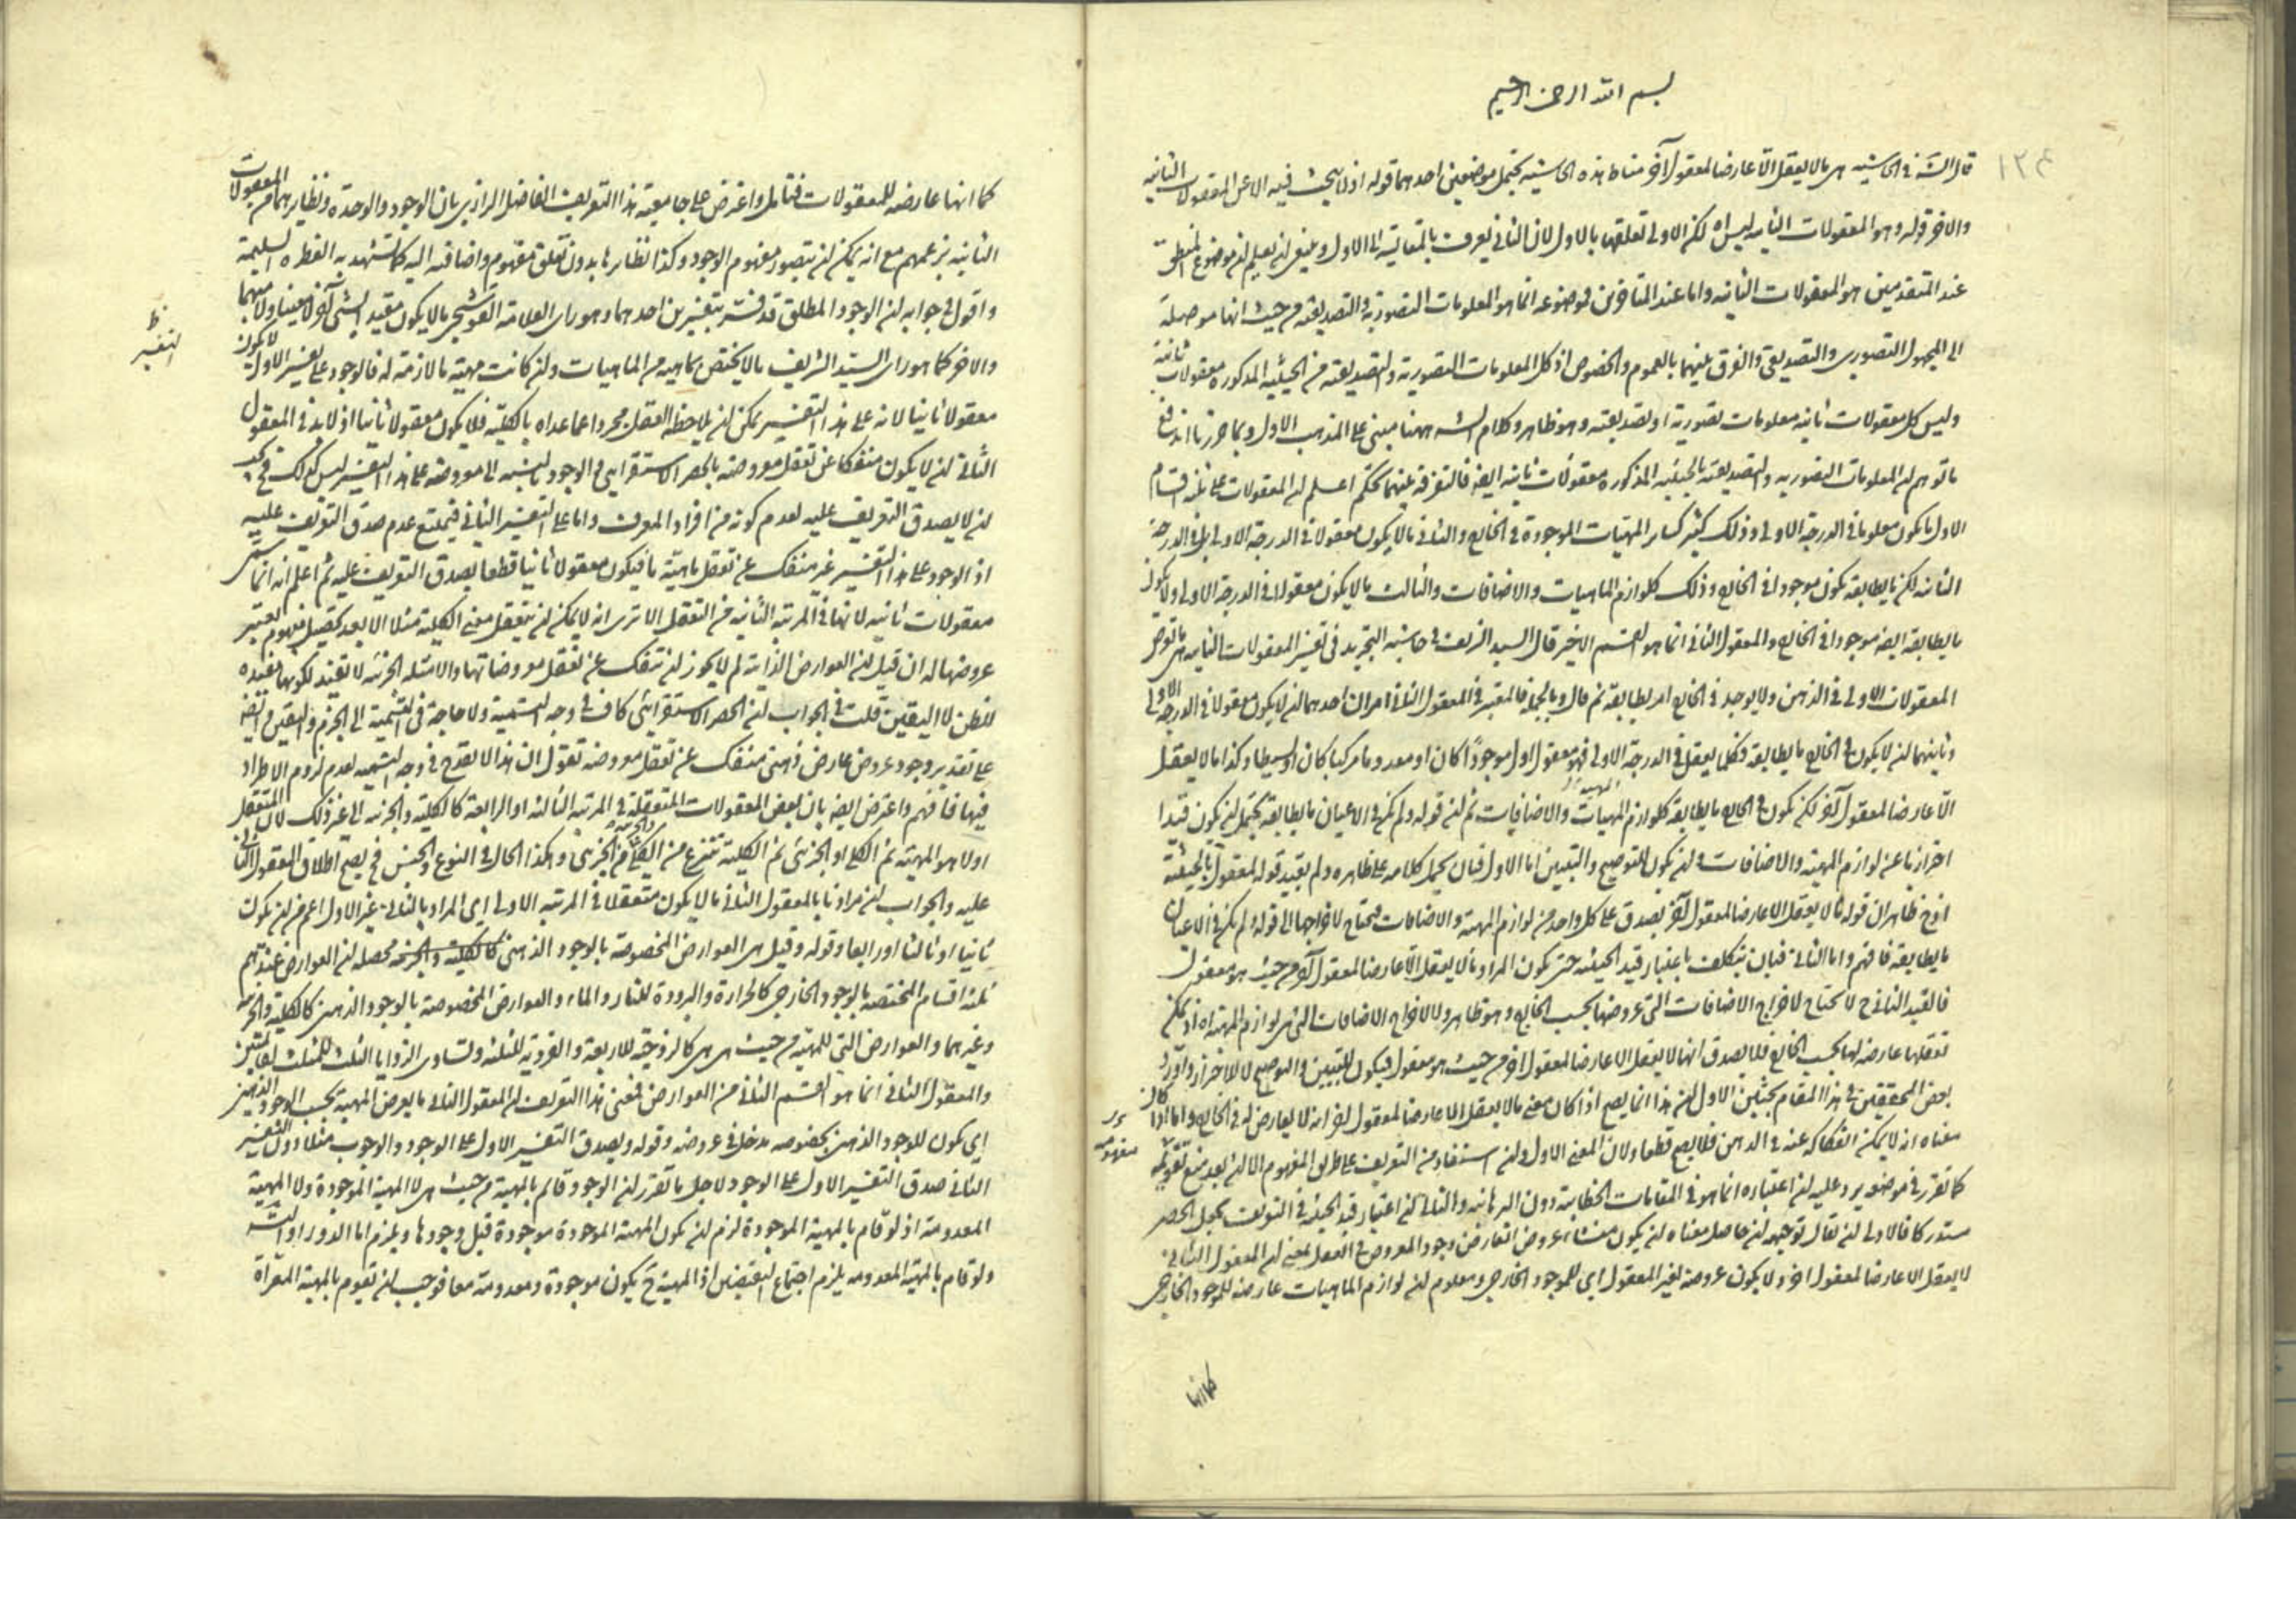 بسم الله الرحمن الرحيم
١٢٤
قال الش في الحاشيه هي ما لا يعقل الا عارضا لمعقول آخر مناط هذه الحاشيه يحتمل موضعين احدهما قوله اذ لا يبحث فيه الا عن المعقولات الثانيه
والاخر قوله وهو المعقولات الثانيه ليس اه لكن الاولى تعلقها بالاول لان الثاني يعرف بالمقايسة الى الاول وينبغي ان يعلم ان موضوع المنطق
عند المتقدمين هو المعقولات الثانيه واما عند المتاخرين فموضوعه انما هو المعلومات التصورية والتصديقية من حيث انها موصلة
الى المجهول التصوري والتصديقي والفرق بينهما بالعموم والخصوص اذ كل المعلومات التصورية والتصديقية من الحيثية المذكوره معقولات ثانية
وليس كل معقولات ثانيه معلومات تصورية او تصديقية وهو ظاهر وكلام الش ههنا مبني على المذهب الاول وبما حررنا اندفع
ما توهم ان المعلومات التصوريه والتصديقية بالحيثية المذكوره معقولات ثانية ايضا فالتفرقة بينهما تحكم اعلم ان المعقولات على ثلثة اقسام
الاول ما يكون معلوما في الدرجة الاولى وذلك كثير كساير المهيات الموجودة في الخارج والثاني ما لا يكون معقولا في الدرجة الاولى بل في الدرجة
الثانية لكن ما يطابقه يكون موجودا في الخارج وذلك كلوازم الماهيات والاضافات والثالث ما لا يكون معقولا في الدرجة الاولى ولا يكون
ما يطابقه ايضا موجودا في الخارج والمعقول الثاني انما هو القسم الاخير قال السيد الشريف في حاشية التجريد في تفسير المعقولات الثانية هي ما تعرض
المعقولات الاولى في الذهن ولا يوجد في الخارج امر يطابقه ثم قال وبالجملة فالمعتبر في المعقول الثاني امران احدهما ان لا يكون معقولا في الدرجة الاولى
وثانيهما ان لا يكون في الخارج ما يطابقه فكلما يعقل في الدرجة الاولى فهو معقول اول موجودا كان او معدوما مركبا كان او بسيطا وكذا ما لا يعقل
الا عارضا لمعقول آخر لكن يكون في الخارج ما يطابقه كلوازم المهيات والاضافيات ثم ان قوله ولم يكن في الاعيان ما يطابقه يحتمل ان يكون قيدا
احترازيا عن لوازم المهية والاضافات وان يكون للتوضيح والتبيين اما الاول فبان يحمل كلامه على ظاهره ولم يقيد قوله لمعقول بالحيثية
اذ ح ظاهر ان قوله ما لا يعقل الا عارضا لمعقول آخر يصدق على كل واحد من لوازم المهية والاضافات فيحتاج لاخراجها الى قوله ولم يكن في الاعيان
ما يطابقه فافهم واما الثاني فبان يتكلف باعتبار قيد الحيثيه حتى يكون المراد ما لا يعقل الا عارضا لمعقول آخر من حيث هو معقول
فالقيد الثاني ح لا يحتاج لاخراج الاضافات التي عروضها بحسب الخارج وهو ظاهر ولا لاخراج الاضافات التي هي لوازم المهية اه اذ يمكن
تعقلها عارضه لها بحسب الخارج فلا يصدق انها لا يعقل الا عارضا لمعقول اخر من حيث هو معقول فيكون للتبيين والتوضيح لا للاحتراز واورد
بعض المحققين في هذا المقام بحثين الاول ان هذا انما يصح اذا كان معنى ما لا يعقل الا عارضا لمعقول اخر انه لا يعارض له في الخارج واما اذا كان
معناه انه لا يمكن انفكاكه عنه في الذهن فلا يصح قطعا ولان المعنى الاول وان استفاد من التعريف على طريق المفهوم الا انه بعد منع تقويمه
كما تقرر في موضعه يرد عليه ان اعتباره انما هو في المقامات الخطابية دون البرهانيه والثاني ان اعتبار قيد الحيثية في التعريف يجعل الحصر
مستدركا فالاولى ان يقال توجيهه ان حاصل معناه ان يكون منشاء عروض العارض وجود المعروض في العقل بمعنى ان المعقول الثاني
لا يعقل الا عارضا لمعقول اخر ولا يكون عروضه لغير المعقول اي للموجود الخارجي ومعلوم ان لوازم الماهيات عارضه للموجود الخارجي
كما انها
كما انها عارضه للمعقولات فتامل واعترض على جامعية هذا التعريف الفاضل الرازي بان الوجود والوحدة ونظايرهما من المعقولات
الثانية بزعمهم مع انه يمكن ان يتصور مفهوم الوجود وكذا نظايرها بدون تعلق مفهوم واضافته اليه كما يشهد به الفطرة السليمة
واقول في جوابه ان الوجود المطلق قد فسر بتفسيرين احدهما وهو راي العلامة القوشجي ما لا يكون مقيدا بشيء آخر لا معينا ولا مبهما
والاخر كما هو راي السيد الشريف ما لا يختص بماهية من الماهيات وان كانت مهية ما لازمة له فالوجود على تفسير الاول لا يكون
معقولا ثانيا لانه على هذا التفسير يمكن ان يلاحظه العقل مجردا عما عداه بالكلية فلا يكون معقولا ثانيا اذ لا بد في المعقول
الثاني ان لا يكون منفكا عن تعقل معروضه بالحصر الاستقرايي في الوجود بالنسبة الى معروضه على هذا التفسير ليس كذلك فح يجب
ان لا يصدق التعريف عليه لعدم كونه من افراد المعرف واما على التفسير الثاني فيمتنع عدم صدق التعريف عليه
اذ الوجود على هذا التفسير غير منفك عن تعقل ماهية ما فيكون معقولا ثانيا قطعا يصدق التعريف عليه ثم اعلم انه انما سمي
معقولات ثانيه لانها في المرتبة الثانيه من التعقل الا ترى انه لا يمكن ان يتعقل معنى الكلية مثلا الا بعد تحصيل مفهوم يعتبر
عروضها له ان قيل ان العوارض الذاتية لم لا يجوز ان تنفك عن تعقل معروضاتها والامثله الجزئيه لا تفيد لكونها مفيدة
للظن لا اليقين قلت في الجواب ان الحصر الاستقرائي كاف في وجه التسمية ولا حاجة في التسمية الى الجزم واليقين ايضا
على تقدير وجود عروض عارض ذهني منفك عن تعقل معروضه نقول ان هذا لا يقدح في وجه التسميه لعدم لزوم الاطراد
فيها فافهم واعترض ايضا بان بعض المعقولات المتعقلة في المرتبة الثالثة او الرابعة كالكلية والجزئيه الى غير ذلك لان المتعقل
اولا هو المهية ثم الكلي او الجزئي ثم الكلية تنتزع من الكلي والجزئية من الجزئي وهكذا الحال في النوع والجنس فح يصح اطلاق المعقول الثاني
عليه والجواب ان مرادنا بالمعقول الثاني ما لا يكون متعقلا في المرتبة الاولى اي المراد بالثاني غير الاول اعم من ان يكون
ثانيا او ثالثا او رابعا وقوله وقيل هي العوارض المخصوصة بالوجود الذهني كالكلية والجزئية محصله ان العوارض عندهم
ثلثة اقسام المختصه بالوجود الخارجي كالحرارة والبرودة للنار والماء والعوارض المخصوصة بالوجود الذهني كالكلية والجزئية
وغيرهما والعوارض التي للمهية من حيث هي هي كالزوجية للاربعة والفردية للثلثة وتساوي الزوايا الثلث للمثلث لقائمتين
والمعقول الثاني انما هو القسم الثاني من العوارض فمعنى هذا التعريف ان المعقول الثاني ما يعرض المهية بحسب الوجود الذهني
اي يكون للوجود الذهني بخصوصه مدخل في عروضه وقوله ويصدق التفسير الاول على الوجود والوجوب مثلا دون التفسير
الثاني صدق التفسير الاول على الوجود لاجل ما تقرر ان الوجود قائم بالمهية من حيث هي لا المهية الموجودة ولا المهية
المعدومة اذ لو قام بالمهية الموجودة لزم ان يكون المهية الموجودة موجودة قبل وجودها ويلزم اما الدور او التسلسل
ولو قام بالمهية المعدومه يلزم اجتماع النقيضين اذ المهية ح يكون موجودة ومعدومة معا فوجب ان تقوم بالمهية المعراة